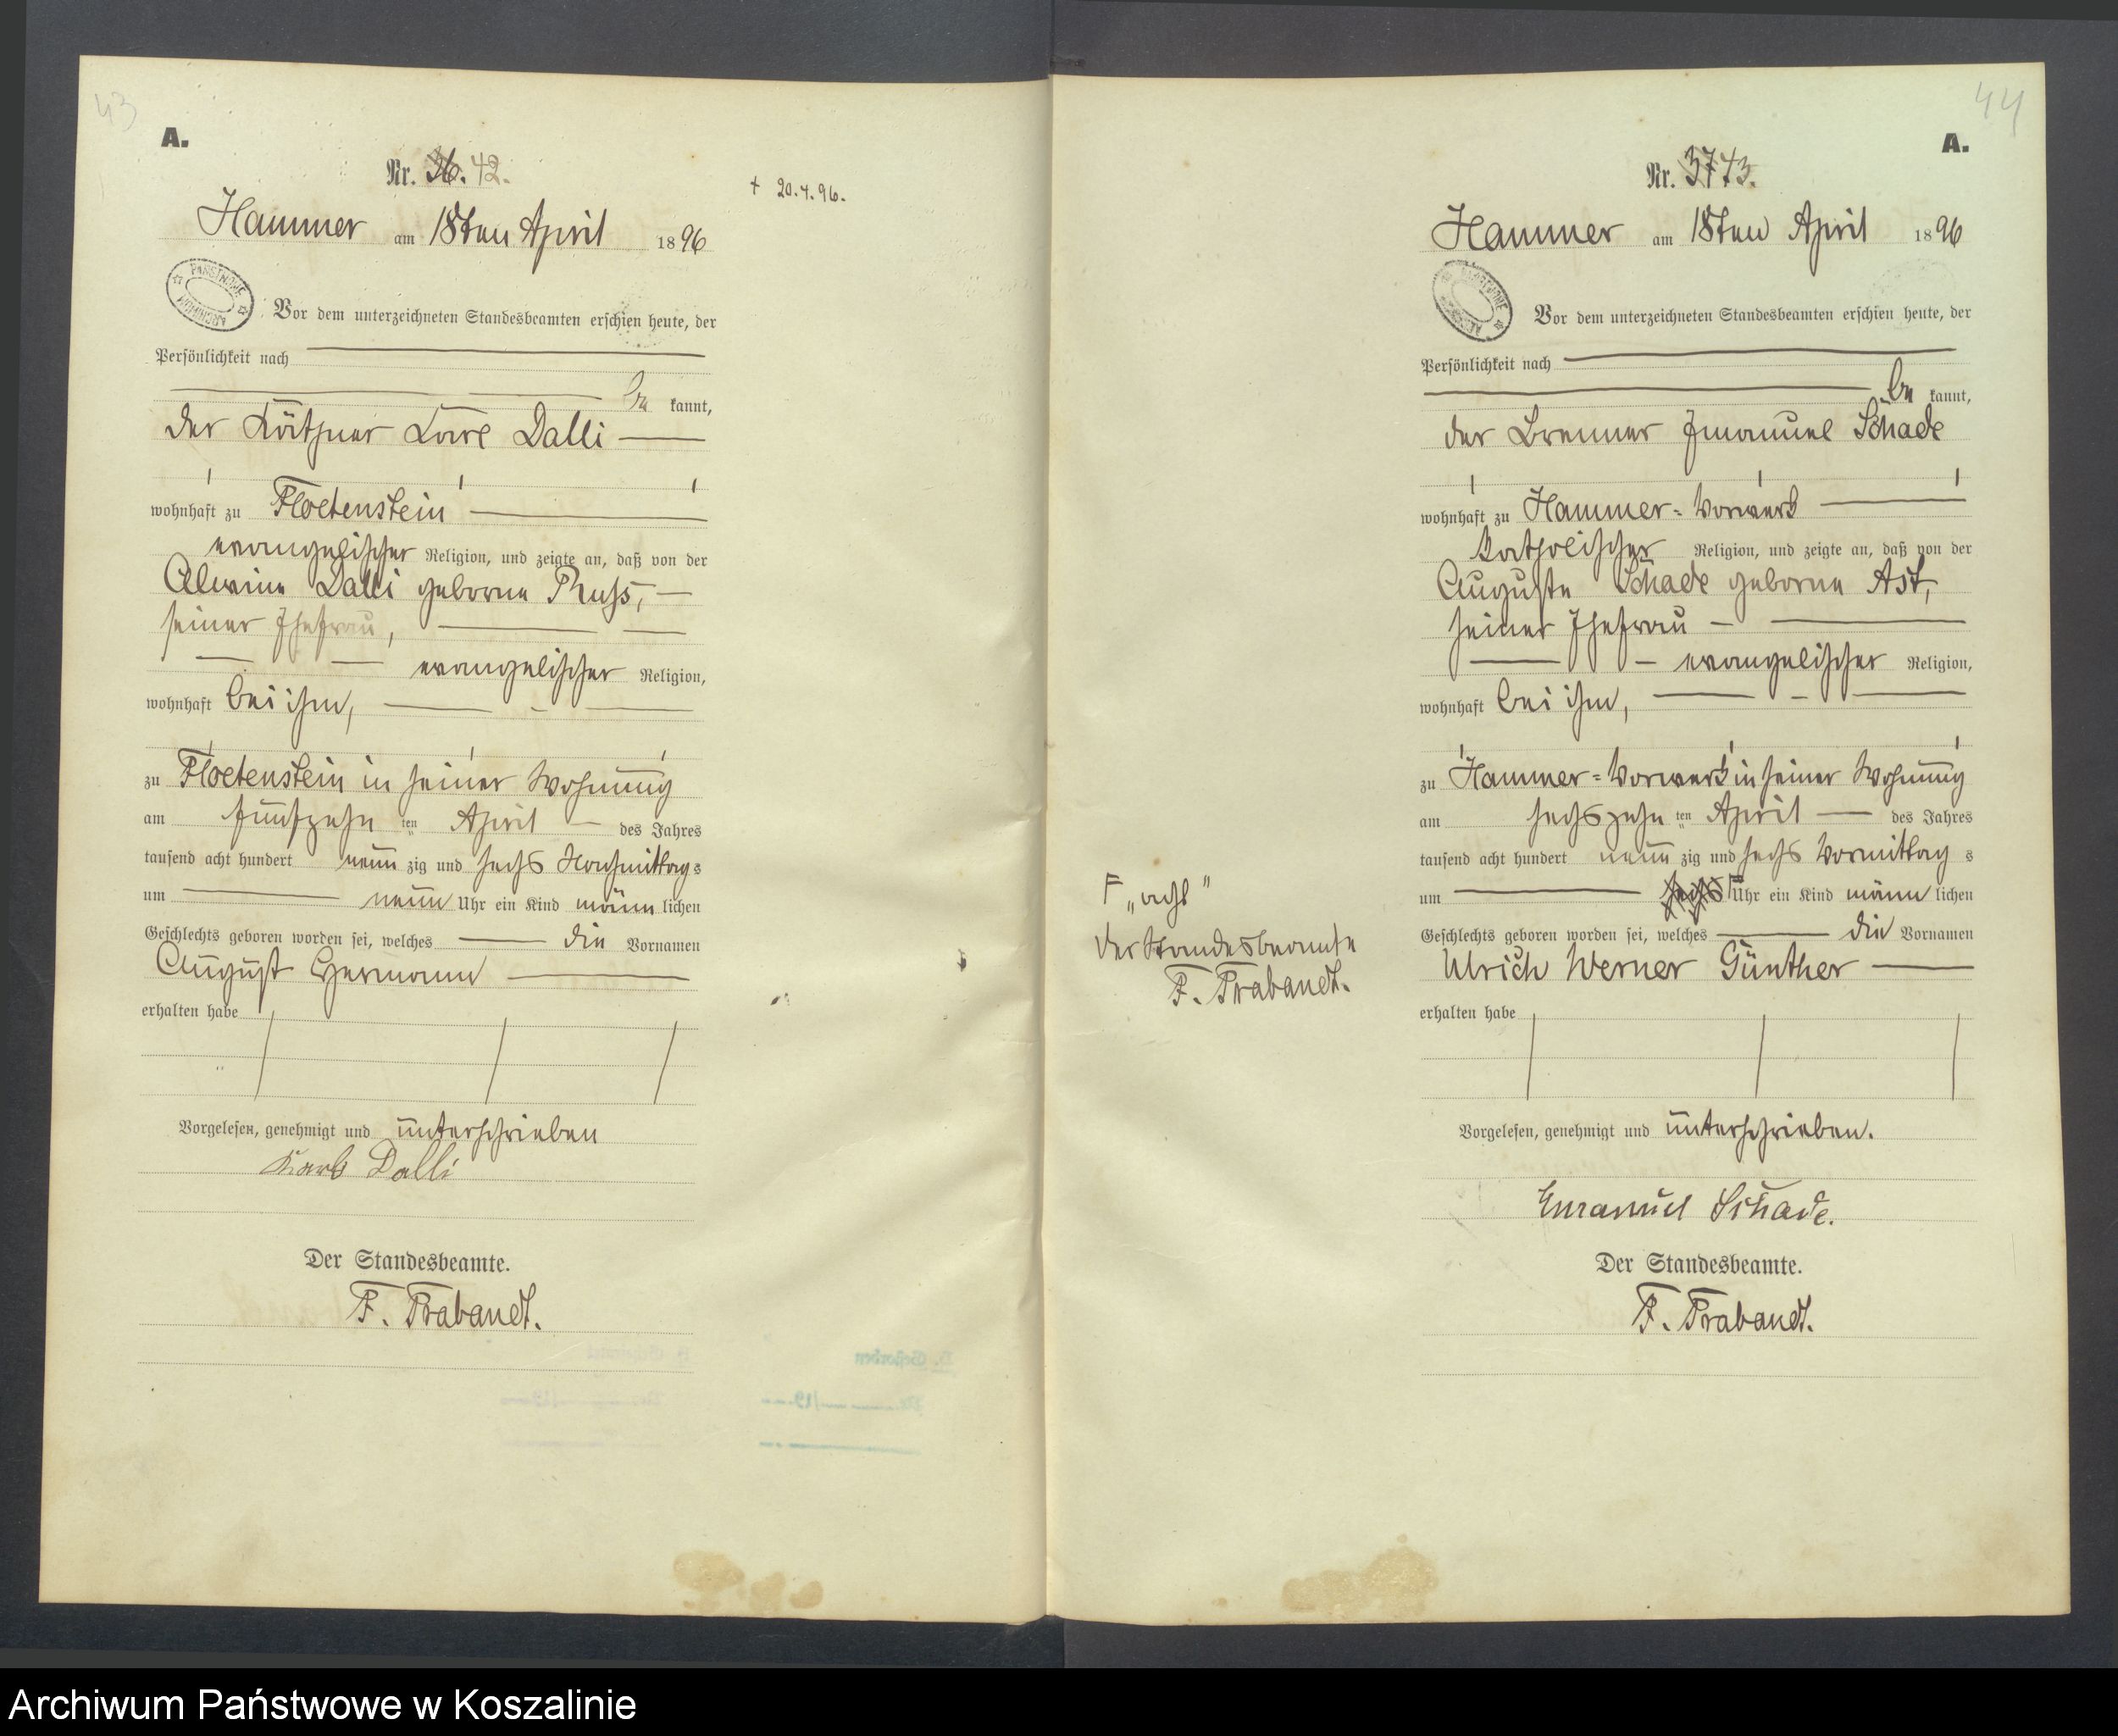 43
A.
Nr. 36. 42.
† 20.4.96.
Hammer am 18ten April 1896
PAŃSTWOWE ARCHIWUM
Vor dem unterzeichneten Standesbeamten erschien heute, der
Persönlichkeit nach
be kannt,
der Käthner Karl Dalli
wohnhaft zu Floetenstein
evangelischer Religion, und zeigte an, daß von der
Alwine Dalli geborne Russ,
seiner Ehefrau,
evangelischer Religion,
wohnhaft bei ihm,
zu Floetenstein in seiner Wohnung
am fünfzehn ten April des Jahres
tausend acht hundert neun zig und sechs Nachmittag s
um neun Uhr ein Kind männ lichen
Geschlechts geboren worden sei, welches die Vornamen
August Hermann
erhalten habe
Vorgelesen, genehmigt und unterschrieben
Karl Dalli
Der Standesbeamte.
F. Trabandt.
44
A.
Nr. 37 43.
Hammer am 18ten April 1896
Vor dem unterzeichneten Standesbeamten erschien heute, der
Persönlichkeit nach
be kannt,
der Brenner Emanuel Schade
wohnhaft zu Hammer-Vorwerk
katholischer Religion, und zeigte an, daß von der
Auguste Schade geborne Ast,
seiner Ehefrau
evangelischer Religion,
wohnhaft bei ihm,
zu Hammer-Vorwerk in seiner Wohnung
am sechszehn ten April des Jahres
tausend acht hundert neun zig und sechs Vormittag s
um sechs F Uhr ein Kind männ lichen
Geschlechts geboren worden sei, welches die Vornamen
Ulrich Werner Günther
erhalten habe
F „acht"
Der Standesbeamte
F. Trabandt.
Vorgelesen, genehmigt und unterschrieben.
Emanuel Schade.
Der Standesbeamte.
F. Trabandt.
Archiwum Państwowe w Koszalinie